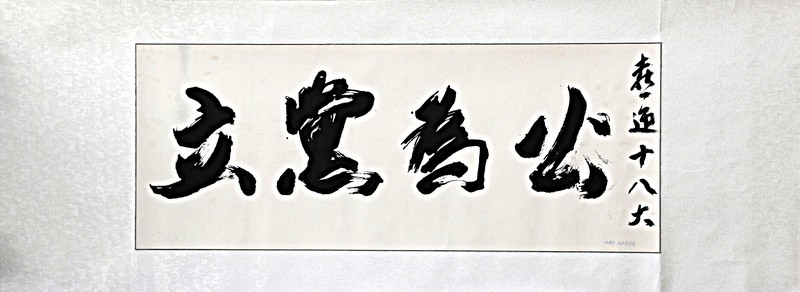 立黨為公
喜迎十八大